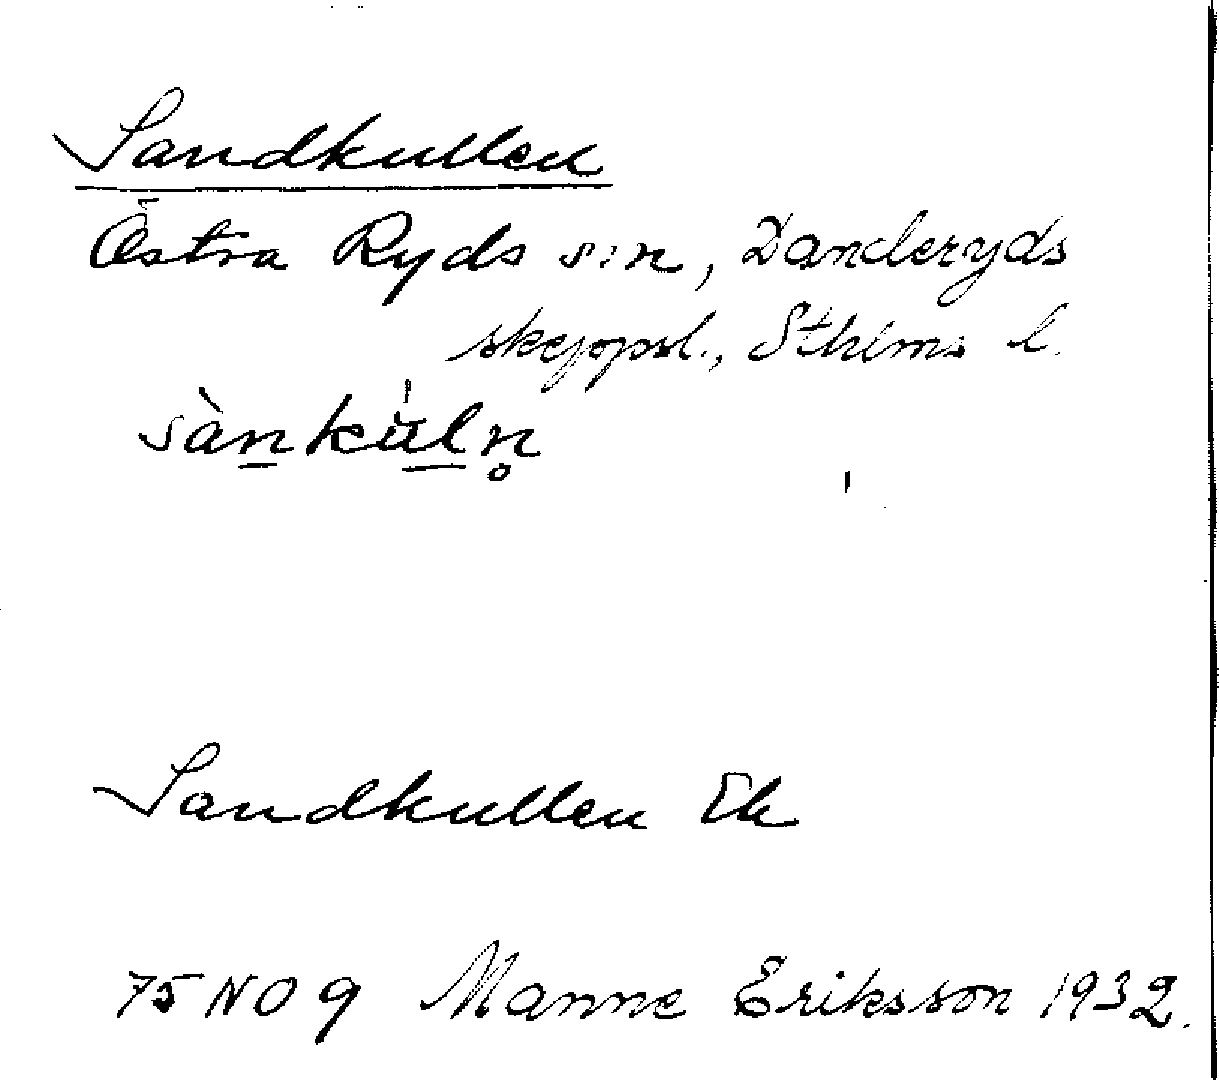 Sandkullen
Östra Ryds s:n, Danderyds
skeppsl., Sthlms l.
sànku̇ln̥
Sandkullen Ek
75 NO 9 Manne Eriksson 1932.